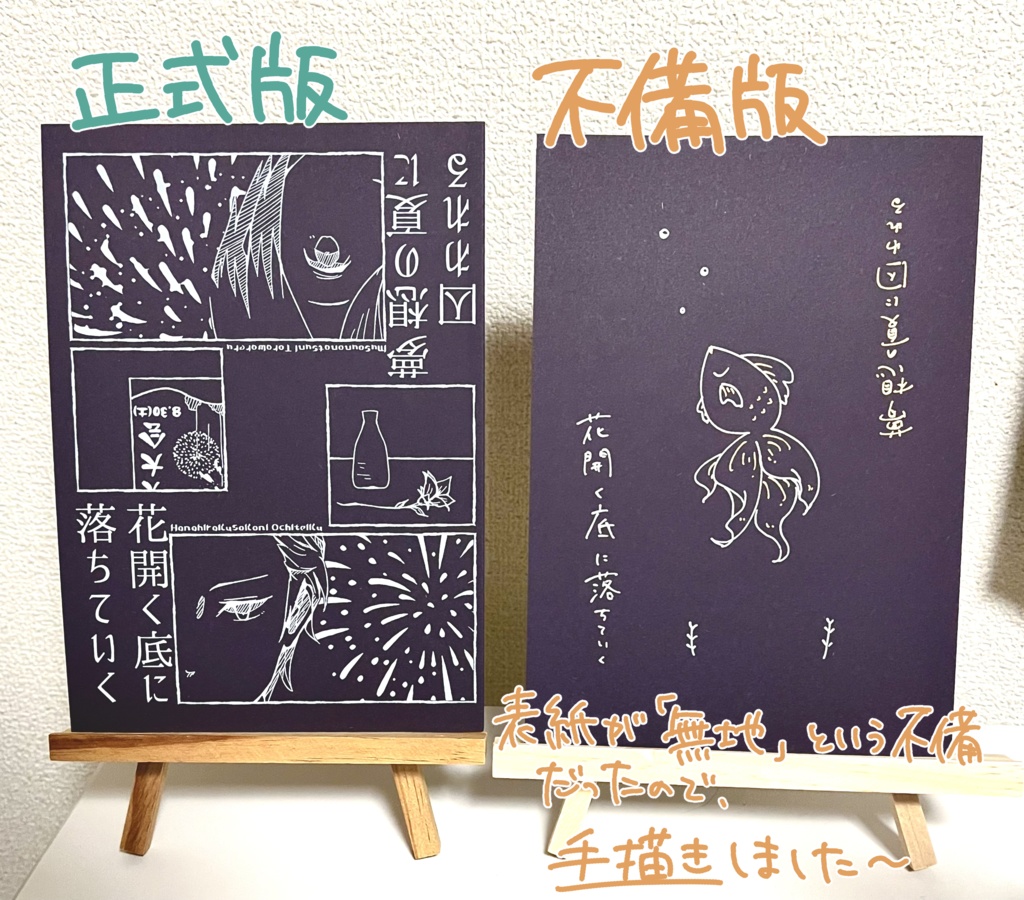 正式版
不備版
夢想の夏に
囚われる
MuSounonatsuni Torawareru
大会
8.30(土)
HanahiraKuSoKoni OchiteiKu
花開く底に
落ちていく
夢想の夏に囚われる
花開く底に落ちていく
表紙が「無地」という不備
だったので、
手描きしました〜